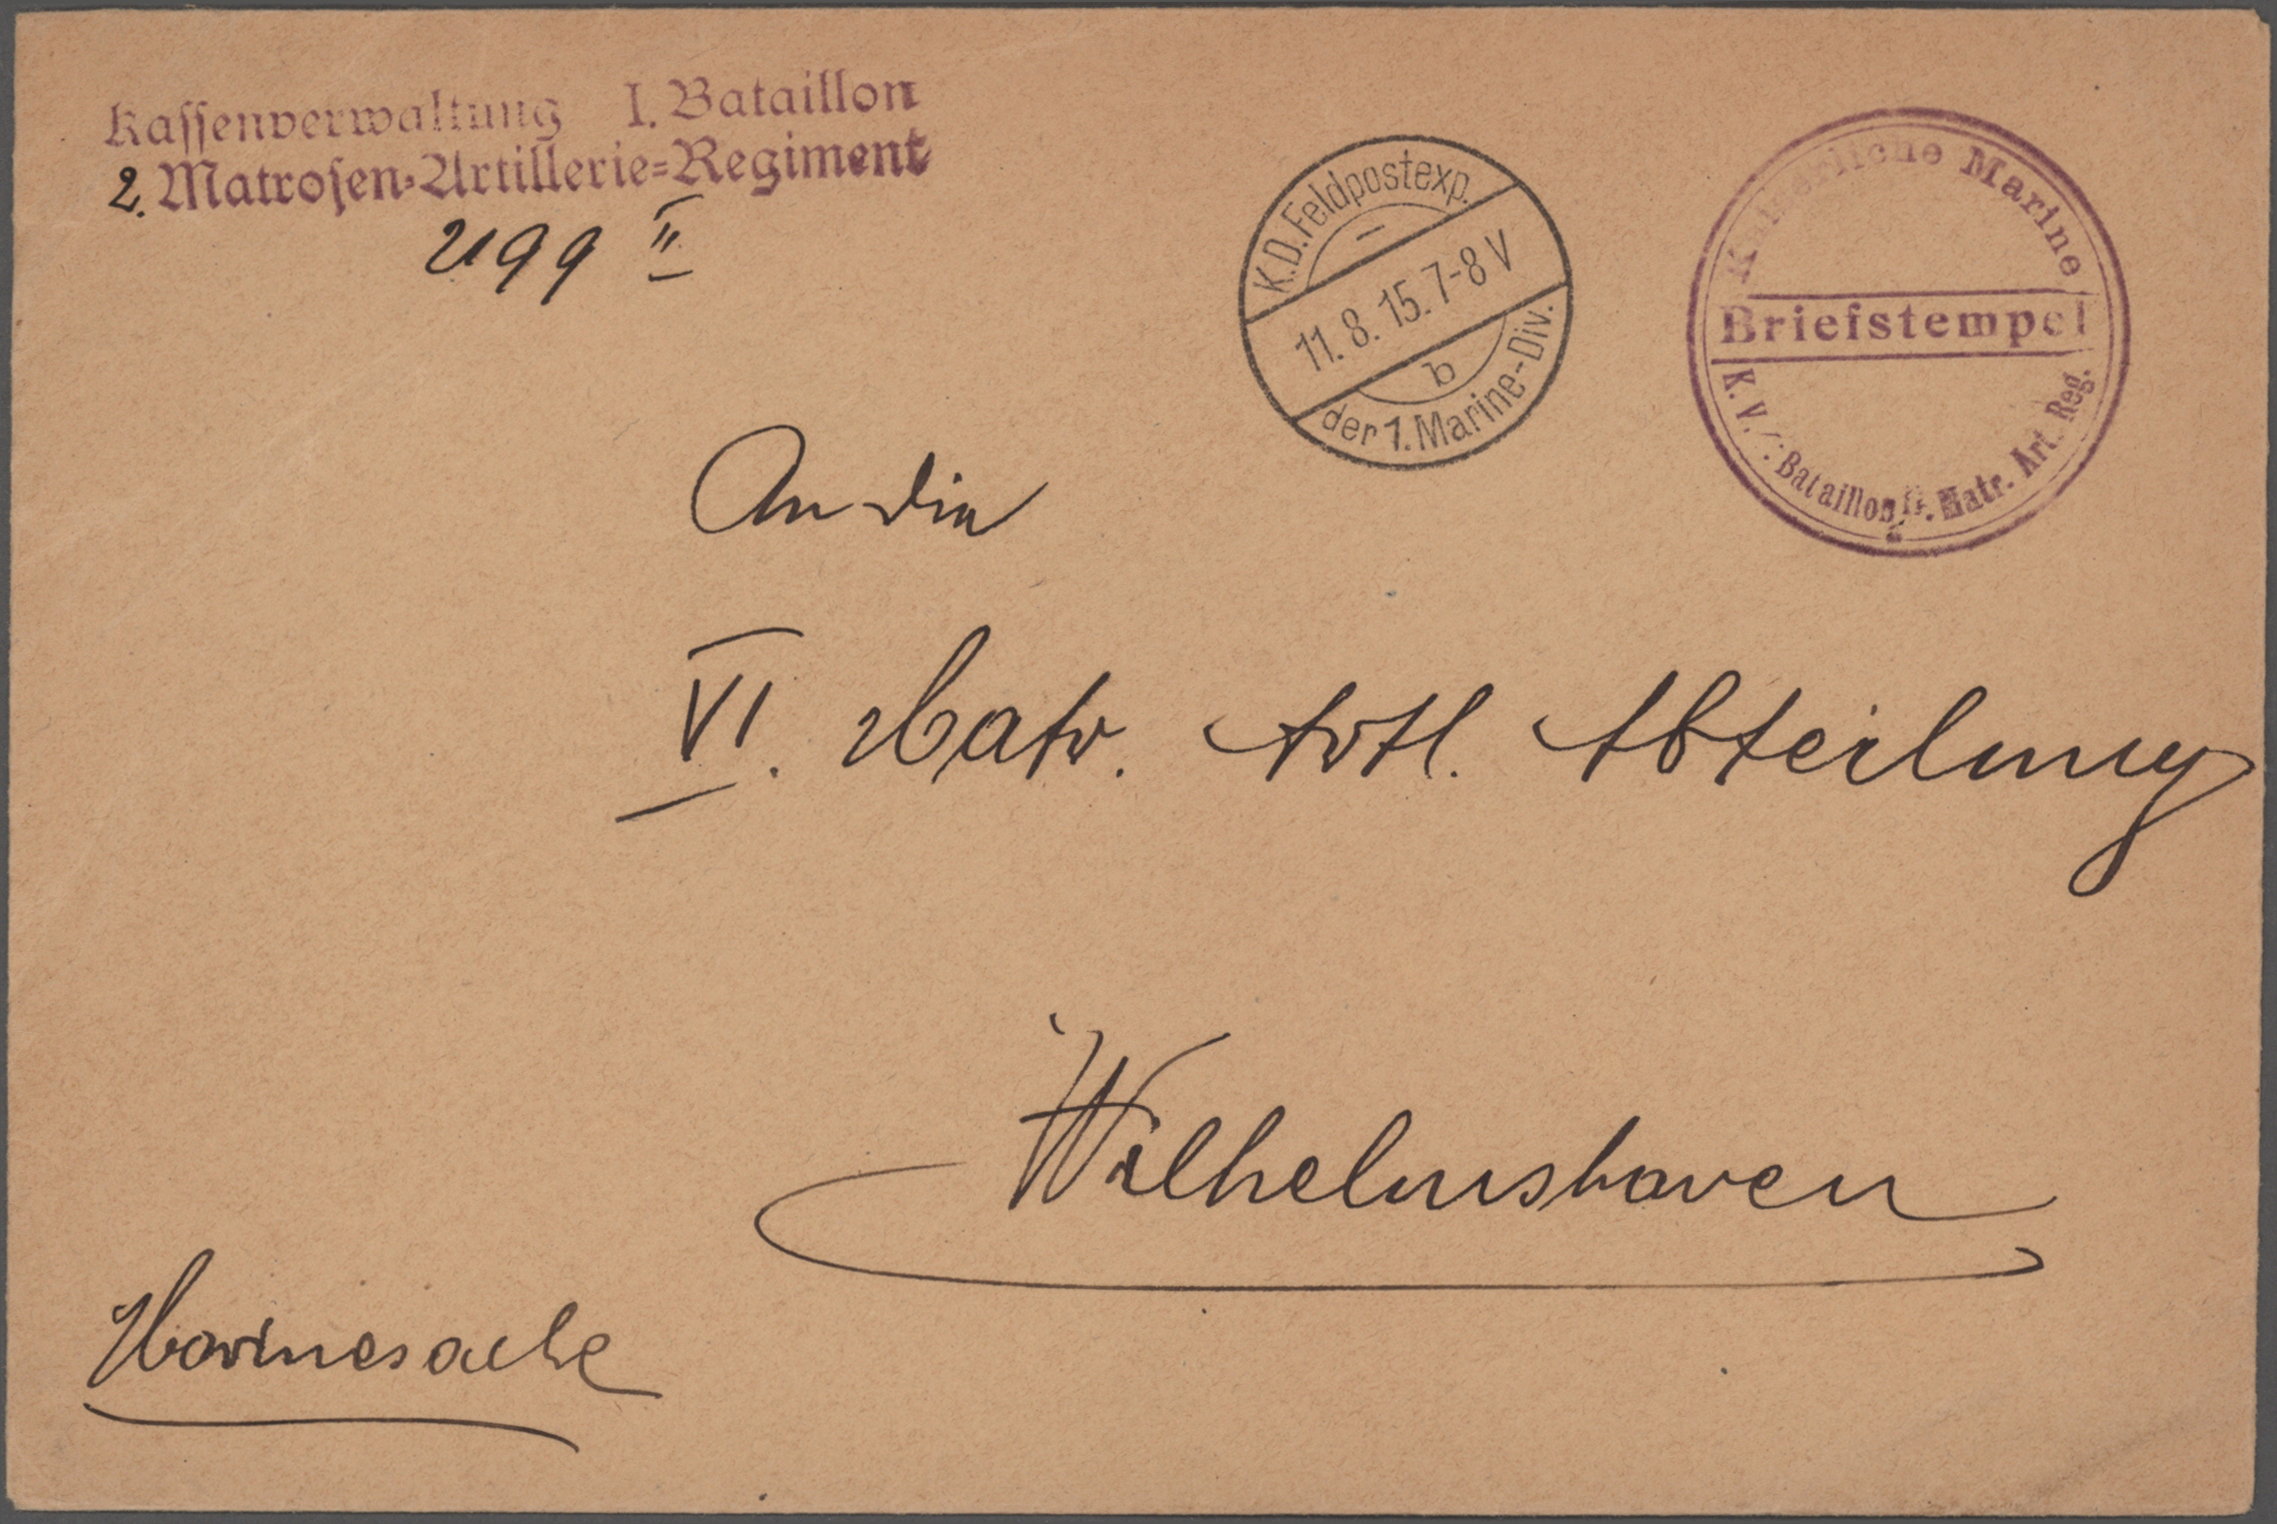 Kassenverwaltung I. Bataillon
2. Matrosen-Artillerie-Regiment
II
K.D. Feldpostexp.
11. 8. 15. 7-8 V
b
der 1. Marine-Div.
Kaiserliche Marine
Briefstempel
K. V. I. Bataillon 2. Matr. Art. Reg.
An die
VI. Matr. Artl. Abteilung
Wilhelmshaven
Marinesache